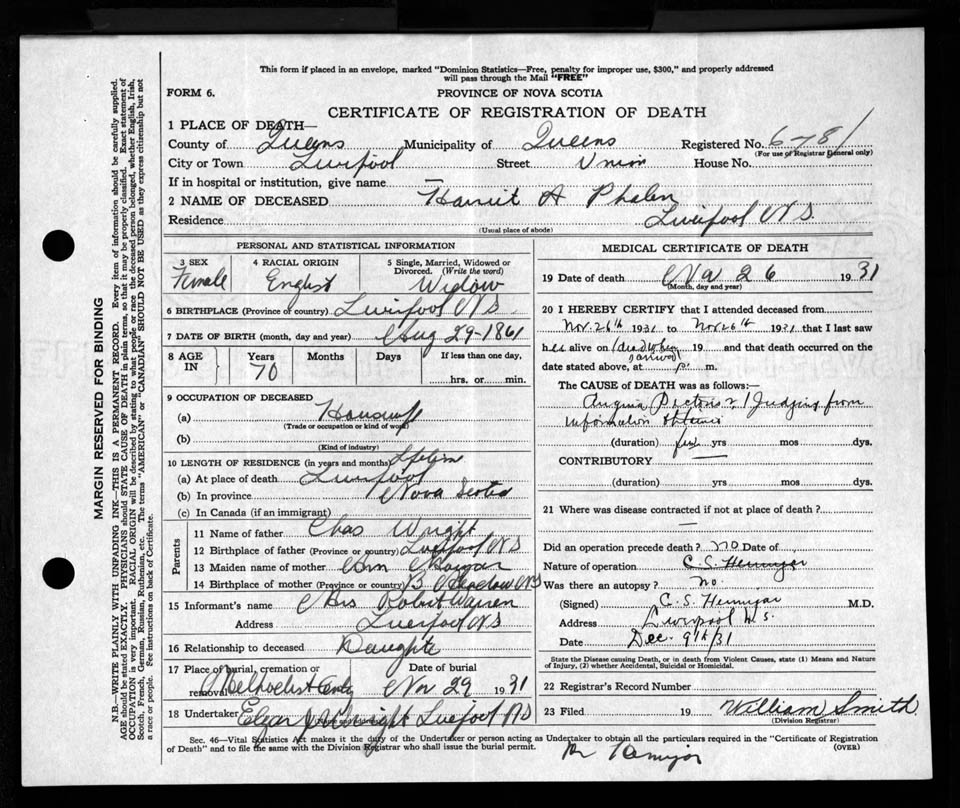 This form if placed in an envelope, marked "Dominion Statistics—Free, penalty for improper use, $300," and properly addressed
will pass through the Mail "FREE"
FORM 6.
PROVINCE OF NOVA SCOTIA
CERTIFICATE OF REGISTRATION OF DEATH
1 PLACE OF DEATH—
County of Queens Municipality of Queens Registered No. 6781
(For use of Registrar General only)
City or Town Liverpool Street Union House No.
If in hospital or institution, give name —
2 NAME OF DECEASED Harriet A Phalen
Residence Liverpool N S.
(Usual place of abode)
PERSONAL AND STATISTICAL INFORMATION
3 SEX
Female
4 RACIAL ORIGIN
English
5 Single, Married, Widowed or
Divorced. (Write the word)
Widow
6 BIRTHPLACE (Province or country) Liverpool N S.
7 DATE OF BIRTH (month, day and year) Aug 29-1861
8 AGE IN
Years 70
Months
Days
If less than one day,
hrs. or min.
9 OCCUPATION OF DECEASED
(a) Housewife
(Trade or occupation or kind of work)
(b)
(Kind of industry)
10 LENGTH OF RESIDENCE (in years and months) Lifetime
(a) At place of death Liverpool
(b) In province Nova Scotia
(c) In Canada (if an immigrant)
Parents
11 Name of father Chas Wright
12 Birthplace of father (Province or country) Liverpool N S
13 Maiden name of mother Ann Morgan
14 Birthplace of mother (Province or country) B Meadow N S
15 Informant's name Mrs Robert Warren
Address Liverpool N S
16 Relationship to deceased Daughter
17 Place of burial, cremation or
removal Methodist Cmty
Date of burial
Nov 29 1931
18 Undertaker Edgar J Wright Liverpool N S
MEDICAL CERTIFICATE OF DEATH
19 Date of death Nov 26 1931
(Month, day and year)
20 I HEREBY CERTIFY that I attended deceased from
Nov. 26th 1931 to Nov 26th 1931 that I last saw
her alive on (dead when 19 and that death occurred on the
I arrived)
date stated above, at p. m.
The CAUSE of DEATH was as follows:—
Angina Pectoris Judging from
information obtained
(duration) yrs mos dys.
CONTRIBUTORY —
(duration) yrs mos dys.
21 Where was disease contracted if not at place of death?
—
Did an operation precede death? no Date of
Nature of operation C. S. Hennigar
Was there an autopsy? no.
(Signed) C. S. Hennigar M.D.
Address Liverpool N. S.
Date Dec. 9th/31
State the Disease causing Death, or in death from Violent Causes, state (1) Means and Nature
of Injury, (2) whether Accidental, Suicidal or Homicidal.
22 Registrar's Record Number
23 Filed 19 William Smith
(Division Registrar)
Sec. 46—Vital Statistics Act makes it the duty of the Undertaker or person acting as Undertaker to obtain all the particulars required in the "Certificate of Registration
of Death" and to file the same with the Division Registrar who shall issue the burial permit.
(OVER)
Hennigar
MARGIN RESERVED FOR BINDING
N.B.—WRITE PLAINLY WITH UNFADING INK—THIS IS A PERMANENT RECORD. Every item of information should be carefully supplied.
AGE should be stated EXACTLY. PHYSICIANS should STATE CAUSE OF DEATH in plain terms, so that it may be properly classified. Exact statement of
OCCUPATION is very important. RACIAL ORIGIN will be described by stating to what people or race the deceased person belonged, whether English, Irish,
Scotch, French, German, Russian, Ruthenian, etc. The terms "AMERICAN" or "CANADIAN" SHOULD NOT BE USED as they express citizenship but not
a race or people. See instructions on back of Certificate.